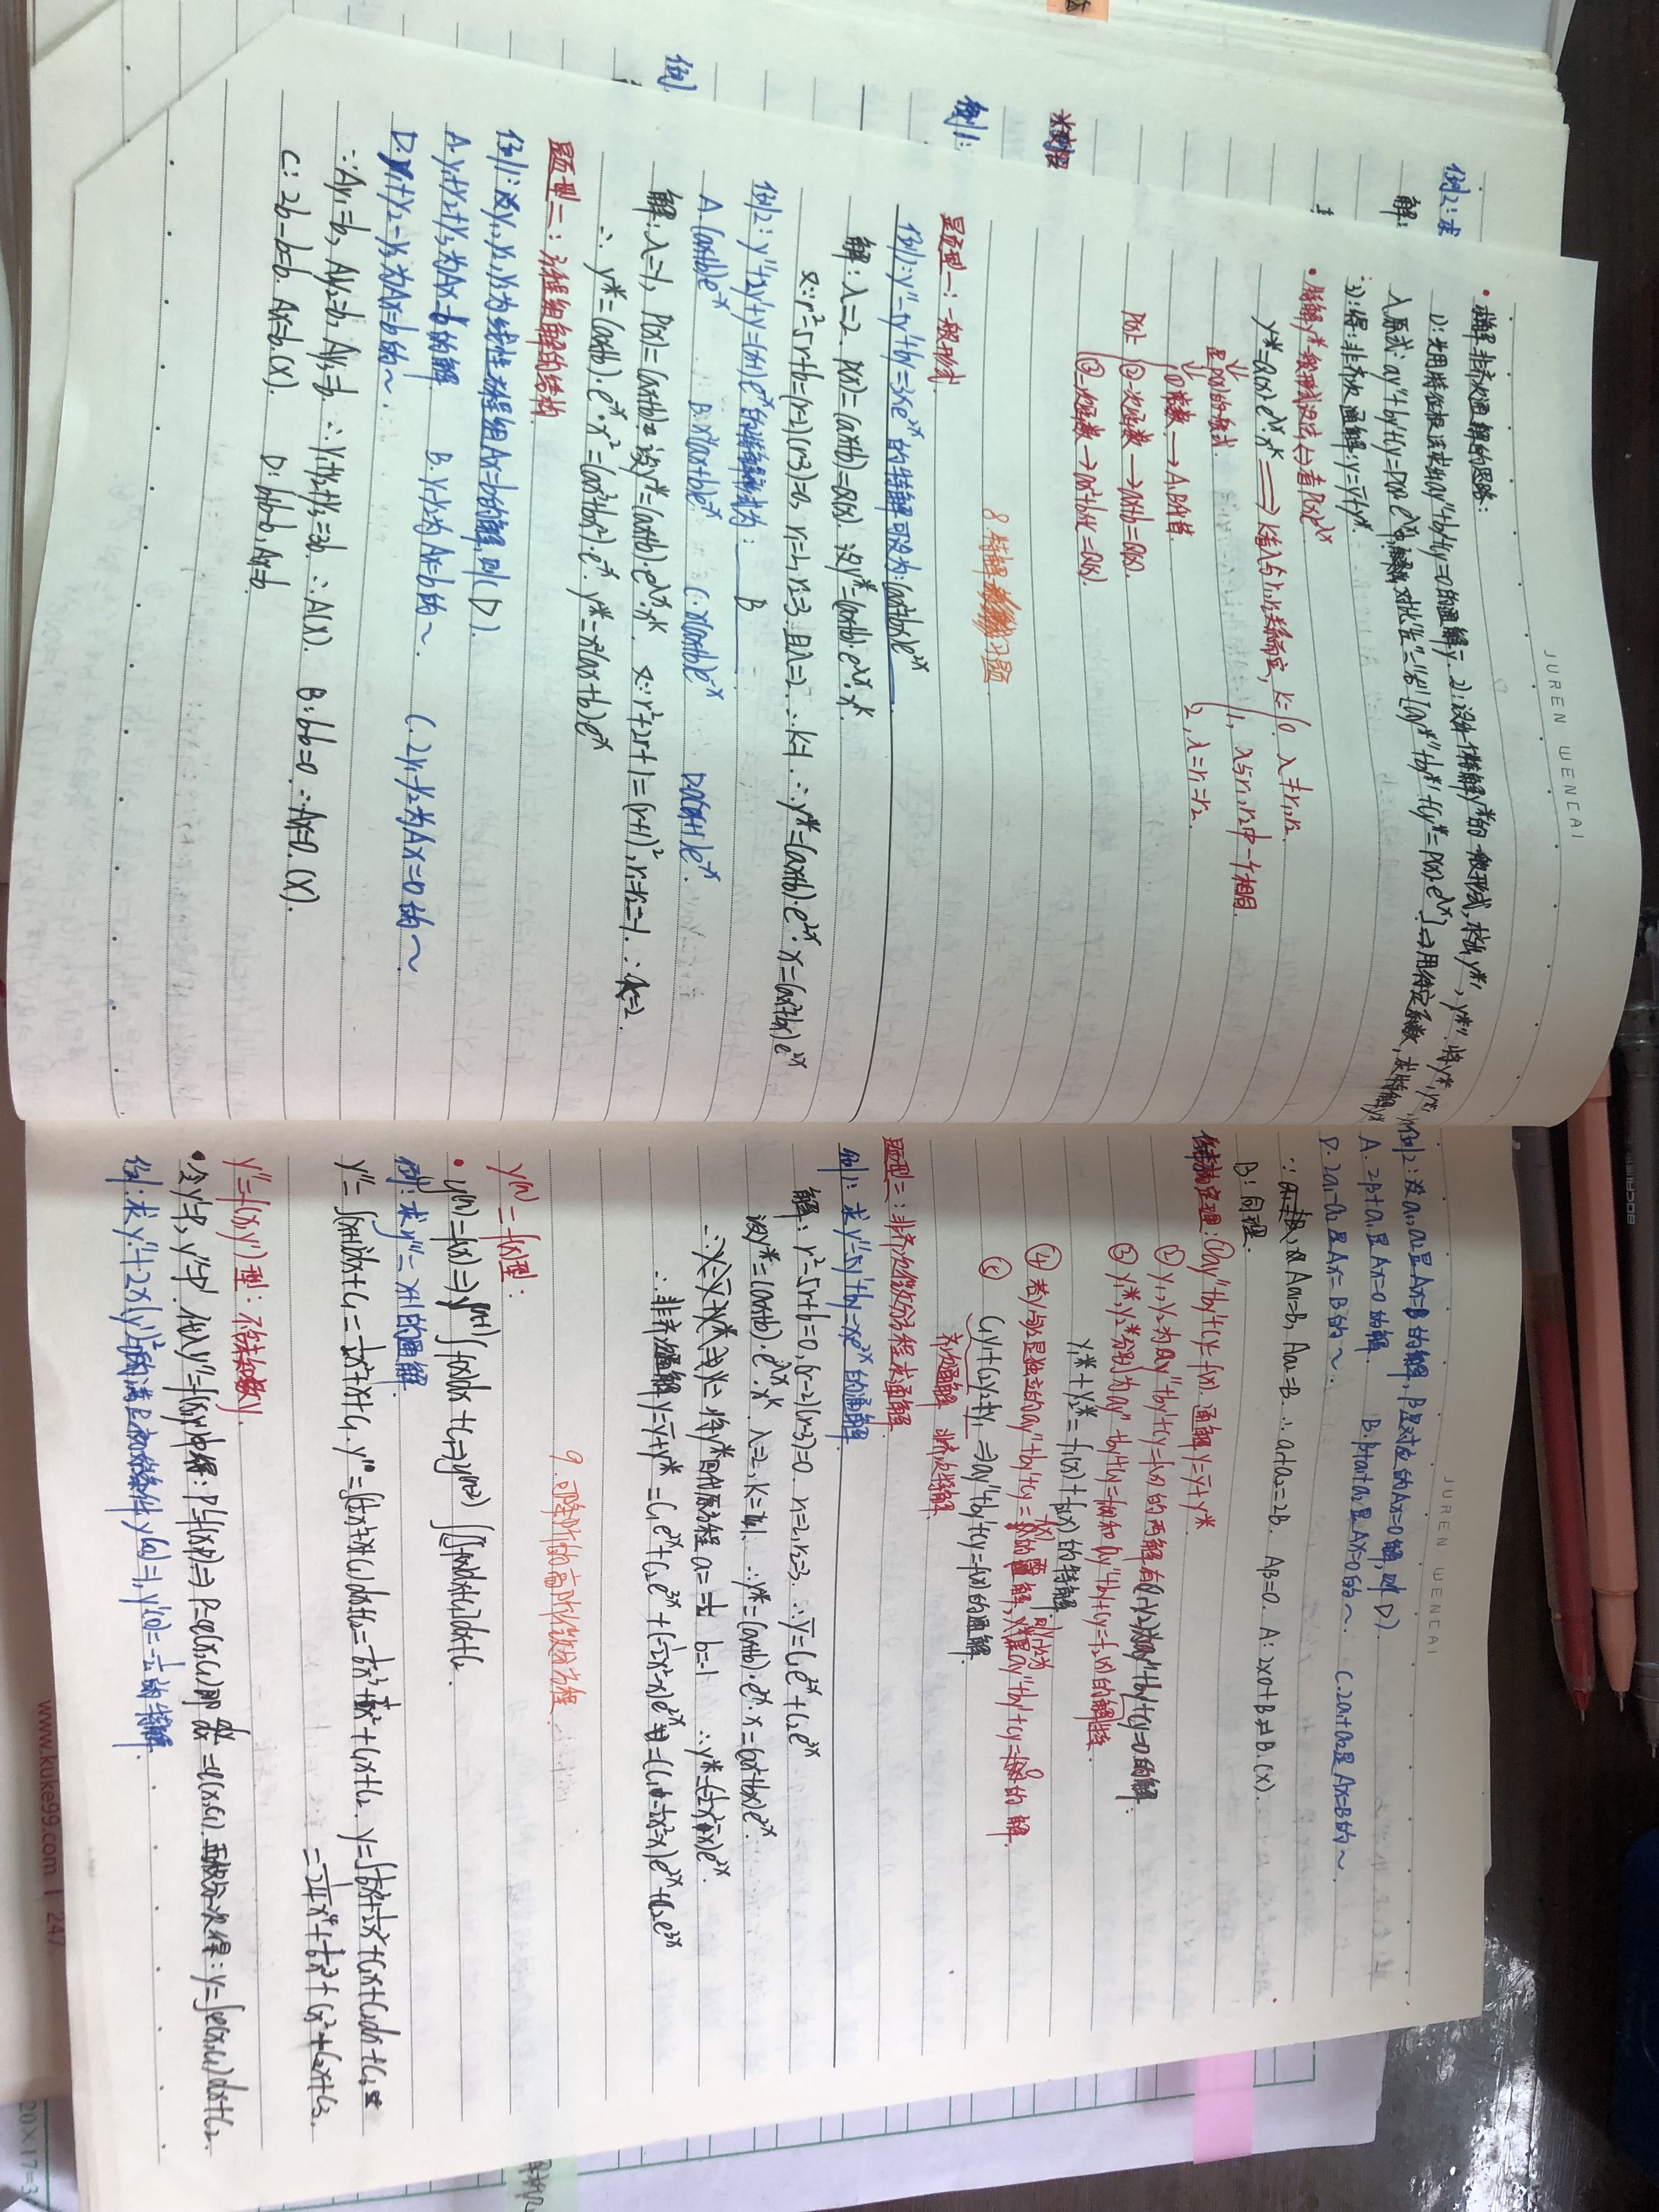 BOCAI
JUREN WENCAI
• 求解非齐次通解的思路:
1):先用特征根法求出ay''+by'+cy=0的通解ȳ. 2):设出一个特解y*的一般形式,求出y*', y*''. 将y*,y*',
入原式: ay''+by'+cy=P(x)·e^λx中, 对比"左"="右" [ay*''+by*'+cy*=P(x)·e^λx] ⇒用待定系数, 求特解y*
3):得:非齐次通解:y=ȳ+y*.
• 特解y*一般形式设法⇔看P(x)e^λx
y*=Q(x)·e^λx·x^k ⟹ k看λ与r₁,r₂关系而定, k= 0, λ≠r₁,r₂.
是P(x)的一般式.
1, λ与r₁,r₂中一个相同.
2, λ=r₁=r₂.
①常数 → A,B代替.
P(x)= ②一次函数 → ax+b=Q(x).
③二次函数 → ax²+bx+c=Q(x).
8.特解 习题.
题型一: 一般形式.
例1:y''-5y'+6y=3xe^2x 的特解可设为:(ax²+bx)e^2x.
解: λ=2. P(x)=(ax+b)=Q(x). 设y*=(ax+b)·e^λx·x^k.
又∵r²-5r+6=(r-2)(r-3)=0, r₁=2, r₂=3. 且λ=2. ∴k=1 ∴y*=(ax+b)·e^2x·x=(ax²+bx)e^2x
例2: y''+2y'+y=(x+1)e^-x的特解形式为: B
A.(ax+b)e^-x B.x²(ax+b)e^-x C.x(ax+b)e^-x D.a(x+1)e^-x.
解:λ=-1, P(x)=(ax+b) 设y*=(ax+b)·e^λx·x^k. 又∵r²+2r+1=(r+1)², r₁=r₂=-1. ∴k=2.
∴ y*=(ax+b)·e^-x·x²=(ax³+bx²)·e^-x. y*=x²(ax+b)·e^-x
题型二: 方程组解的结构.
例1:设y₁,y₂,y₃为线性方程组Ax=b的解,则(D).
A.y₁+y₂+y₃为Ax=b的解. B.y₁-y₂为Ax=b的~. C.2y₁-y₂为Ax=0的~
D.y₁+y₂-y₃为Ax=b的~.
∵Ay₁=b, Ay₂=b, Ay₃=b. ∴y₁+y₂+y₃=3b. ∴A(X). B:b-b=0. ∴Ax=0.(X).
C: 2b-b=b. Ax=b.(X). D: b+b-b, Ax=b.
例2:求
解:
例1:
例.
JUREN WENCAI
例2: 设a₁,a₂是Ax=B的解, β是对应的Ax=0解,则(D).
A. 2β+a₁是Ax=0的解. B.β+a₁+a₂是Ax=0的~. C.2a₁+a₂是Ax=B的~.
D. 2a₁-a₂是Ax=B的~.
∵ Aa₁=B, Aa₂=B. ∴a₁+a₂=2B. Aβ=0. A: 2×0+B=B.(X).
B: 同理.
结构定理: ①ay''+by'+cy=f(x). 通解y=ȳ+y*.
② y₁,y₂为ay''+by'+cy=f(x)的两解,有(y₁-y₂)为ay''+by'+cy=0的解.
③ y₁*,y₂*分别为ay''+by'+cy=f₁(x)和ay''+by'+cy=f₂(x)的解特.
y₁*+y₂*=f₁(x)+f₂(x)的特解.
④ 若y₁与y₂是独立的ay''+by'+cy=f(x)的解, 则y₁-y₂为ay''+by'+cy=0的解.
⑤ C₁y₁+C₂y₂+y₁ ⇒ay''+by'+cy=f(x)的通解.
齐次通解 非齐次特解.
题型三:非齐次微分方程求通解
例1: 求y''-5y'+6y=xe^2x的通解.
解: r²-5r+6=0, (r-2)(r-3)=0. r₁=2, r₂=3. ∴ȳ=C₁e^2x+C₂e^3x
设y*=(ax+b)·e^λx·x^k. λ=2, k=1. ∴y*=(ax+b)·e^2x·x=(ax²+bx)e^2x.
将y*回代原方程 a=-½ b=-1 ∴y*=(-½x²-x)e^2x.
∴非齐次通解y=ȳ+y*=C₁e^2x+C₂e^3x+(-½x²-x)e^2x=(C₁-½x²-x)e^2x+C₂e^3x
9.可降阶的高阶微分方程.
y^(n)=f(x)型:
• y^(n)=f(x)⇒y^(n-1)∫f(x)dx+C₁⇒y^(n-2) ∫[∫f(x)dx+C₁]dx+C₂.
例: 求y'''=x+1的通解.
y''=∫(x+1)dx+C₁=½x²+x+C₁. y'=∫(½x²+x+C₁)dx+C₂=⅙x³+½x²+C₁x+C₂. y=∫⅙x³+½x²+C₁x+C₂dx+C₃
=1/24x⁴+⅙x³+C₁x²+C₂x+C₃.
y''=f(x,y')型: 不含未知数y.
• 令y'=P, y''=P'. 代入y''=f(x,y')中得: P'=f(x,P)⇒P=φ(x,C₁)即dy/dx=φ(x,C₁). 再积分一次得: y=∫φ(x,C₁)dx+C₂.
例:求y''+2x(y')²=0的满足初始条件y(0)=1, y'(0)=-½的特解.
www.kuke99.com | 247
20×17=3